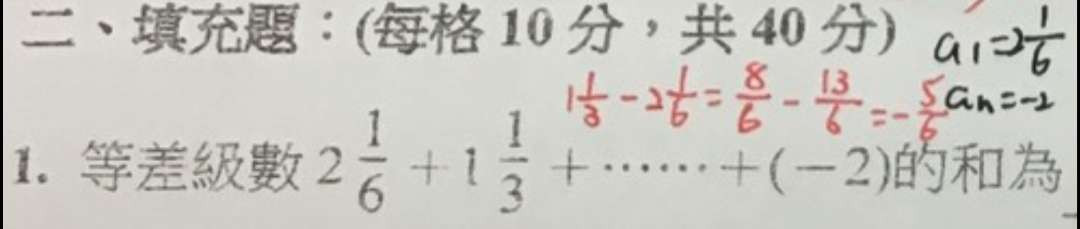 二、填充題：(每格 10 分，共 40 分) a1=2 1/6
1 1/3 - 2 1/6 = 8/6 - 13/6 = - 5/6 an=-2
1. 等差級數 2 1/6 + 1 1/3 + ⋯⋯ + (-2)的和為